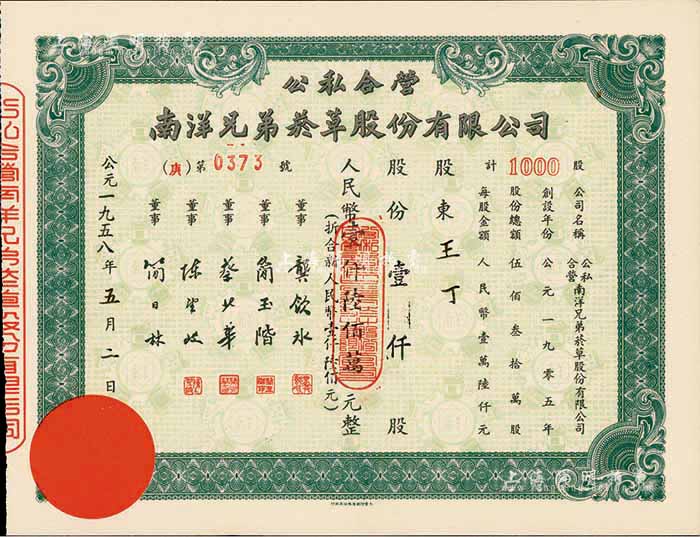 公私合营
南洋兄弟菸草股份有限公司
(庚)第0373號
計1000股
公司名稱 公私合营南洋兄弟菸草股份有限公司
創設年份 公元一九零五年
股份總額 伍佰叁拾萬股
每股金額 人民幣壹萬陸仟元
股東 王丁
股份 壹仟股
人民幣壹仟陸佰萬元整
(折合新人民幣壹仟陸佰元)
董事 龔飲冰
董事 簡玉階
董事
董事
董事 簡日林
公元一九五八年五月二日